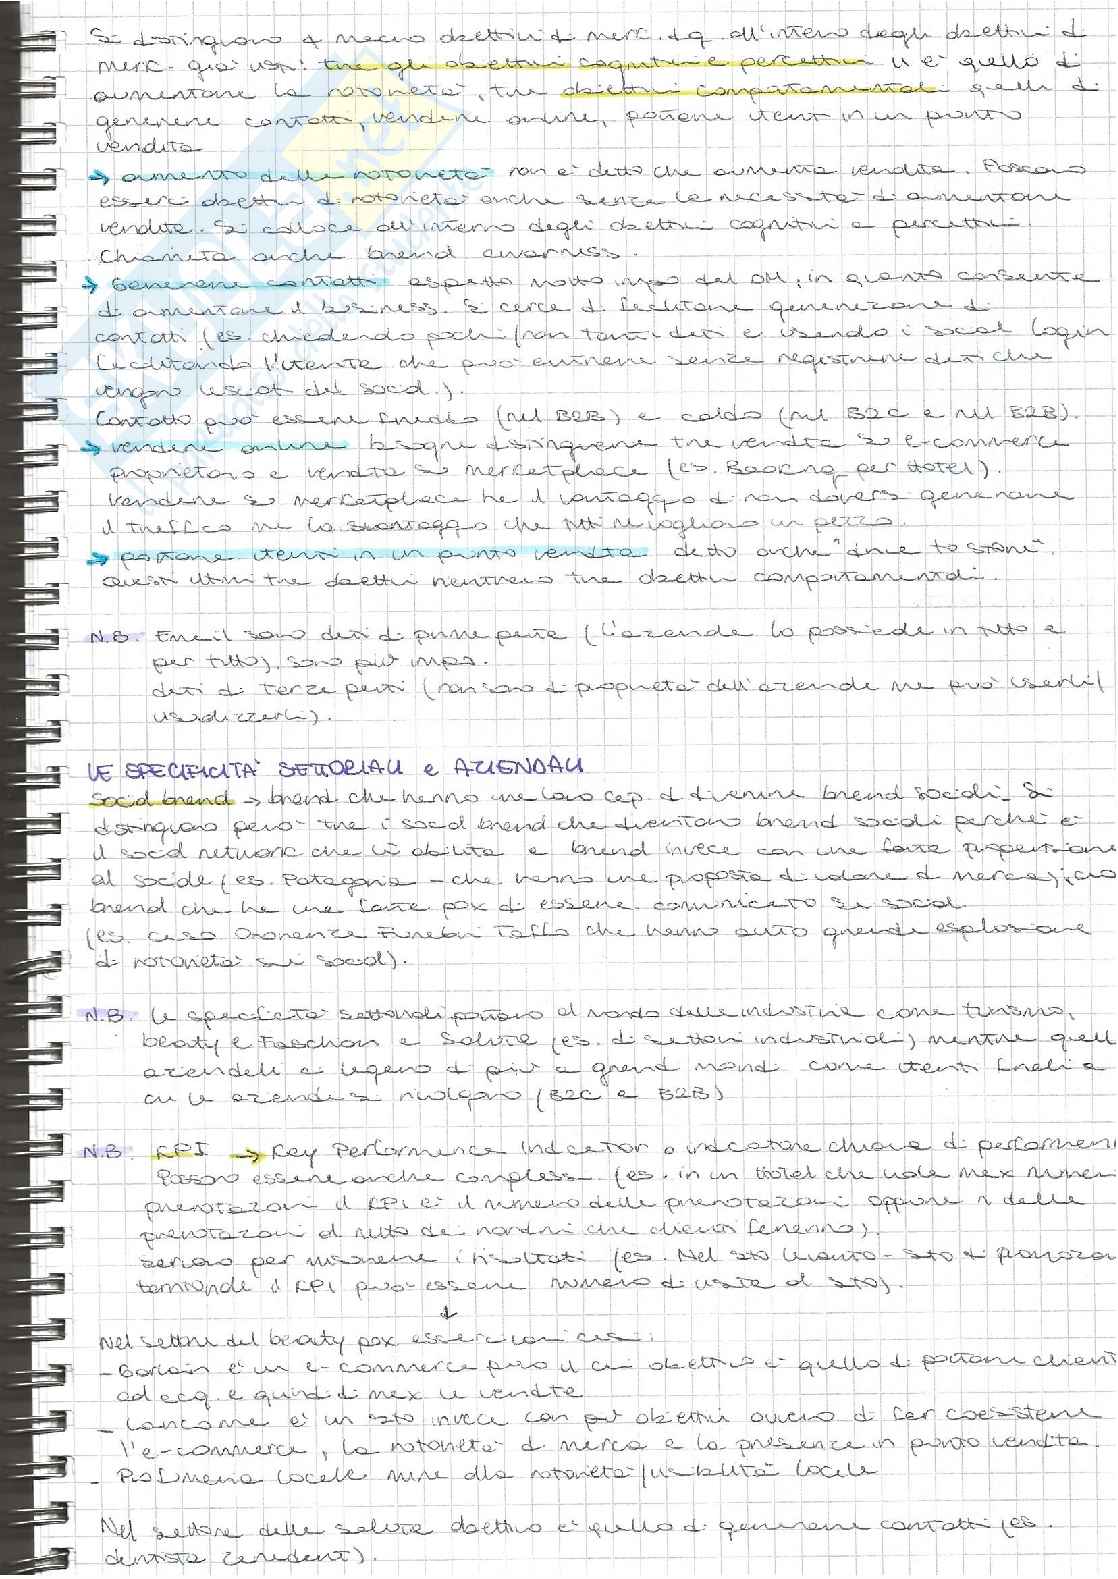 Si distinguono 4 macro obiettivi di merc. dig. all'interno degli obiettivi di
merc. già visti: tra gli obiettivi cognitivi e percettivi vi è quello di
aumentare la notorietà, tra obiettivi comportamentali quelli di
generare contatti, vendere online, portare utenti in un punto
vendita
→ aumento della notorietà non è detto che aumenta vendita. Possono
esserci obiettivi di notorietà anche senza la necessità di aumentare
vendite. Si colloca all'interno degli obiettivi cognitivi e percettivi.
Chiamata anche brand awarness.
→ Generare contatti aspetto molto impo del DM, in quanto consente
di aumentare il business. Si cerca di facilitare generazione di
contatti (es. chiedendo pochi/non tanti dati e usando i social login
facilitando l'utente che può entrare senza registrare dati che
vengono lasciati dal social.).
Contatto può essere freddo (nel B2B) e caldo (nel B2C e nel B2B).
→ vendere online bisogna distinguere tra vendita su e-commerce
proprietario e vendita su marketplace (es. Booking per Hotel).
Vendere su marketplace ha il vantaggio di non doversi generare
il traffico ma lo svantaggio che tutti ne vogliono un pezzo.
→ portare utenti in un punto vendita detto anche "drive to store".
Questi ultimi tre obiettivi rientrano tra obiettivi comportamentali.
N.B. Email sono dati di prima parte (l'azienda lo possiede in tutto e
per tutto), sono più impo.
dati di Terze parti (non sono di proprietà dell'azienda ma può usarli/
utilizzarli).
LE SPECIFICITÀ SETTORIALI e AZIENDALI
Social brand → brand che hanno una loro cap. di divenire brand sociali. Si
distinguono però tra i social brand che diventano brand sociali perché è
il social network che li abilita e brand invece con una forte propensione
al sociale (es. Patagonia - che hanno una proposta di valore di marca), cioè
brand che ha una forte pox di essere comunicato sui social
(es. caso Onoranze Funebri Taffo che hanno avuto grande esplosione
di notorietà sui social).
N.B. Le specificità settoriali portano al mondo delle industrie come turismo,
beauty e Faschion e Salute (es. di settori industriali) mentre quelle
aziendali si legano di più a grandi mondi come utenti finali a
cui le aziende si rivolgono (B2C e B2B)
N.B. KPI → Key Performance Indicator o indicatore chiave di performance
Possono essere anche complessi (es. in un Hotel che vuole max numero
prenotazioni il KPI è il numero delle prenotazioni oppure n delle
prenotazioni al netto dei no che clienti faranno).
servono per misurare i risultati (es. Nel sito - sito di promozione
territoriale il KPI può essere numero di visite al sito).
↓
Nel settore del beauty pox esserci vari casi:
- è un e-commerce puro il cui obiettivo è quello di portare clienti
ad acq. e quindi di max le vendite
- Lancome è un sito invece con più obiettivi ovvero di far coesistere
l'e-commerce, la notorietà di marca e la presenza in punto vendita.
- Profumeria locale mira alla notorietà/visibilità locale
Nel settore della salute obiettivo è quello di generare contatti (es.
dentista).